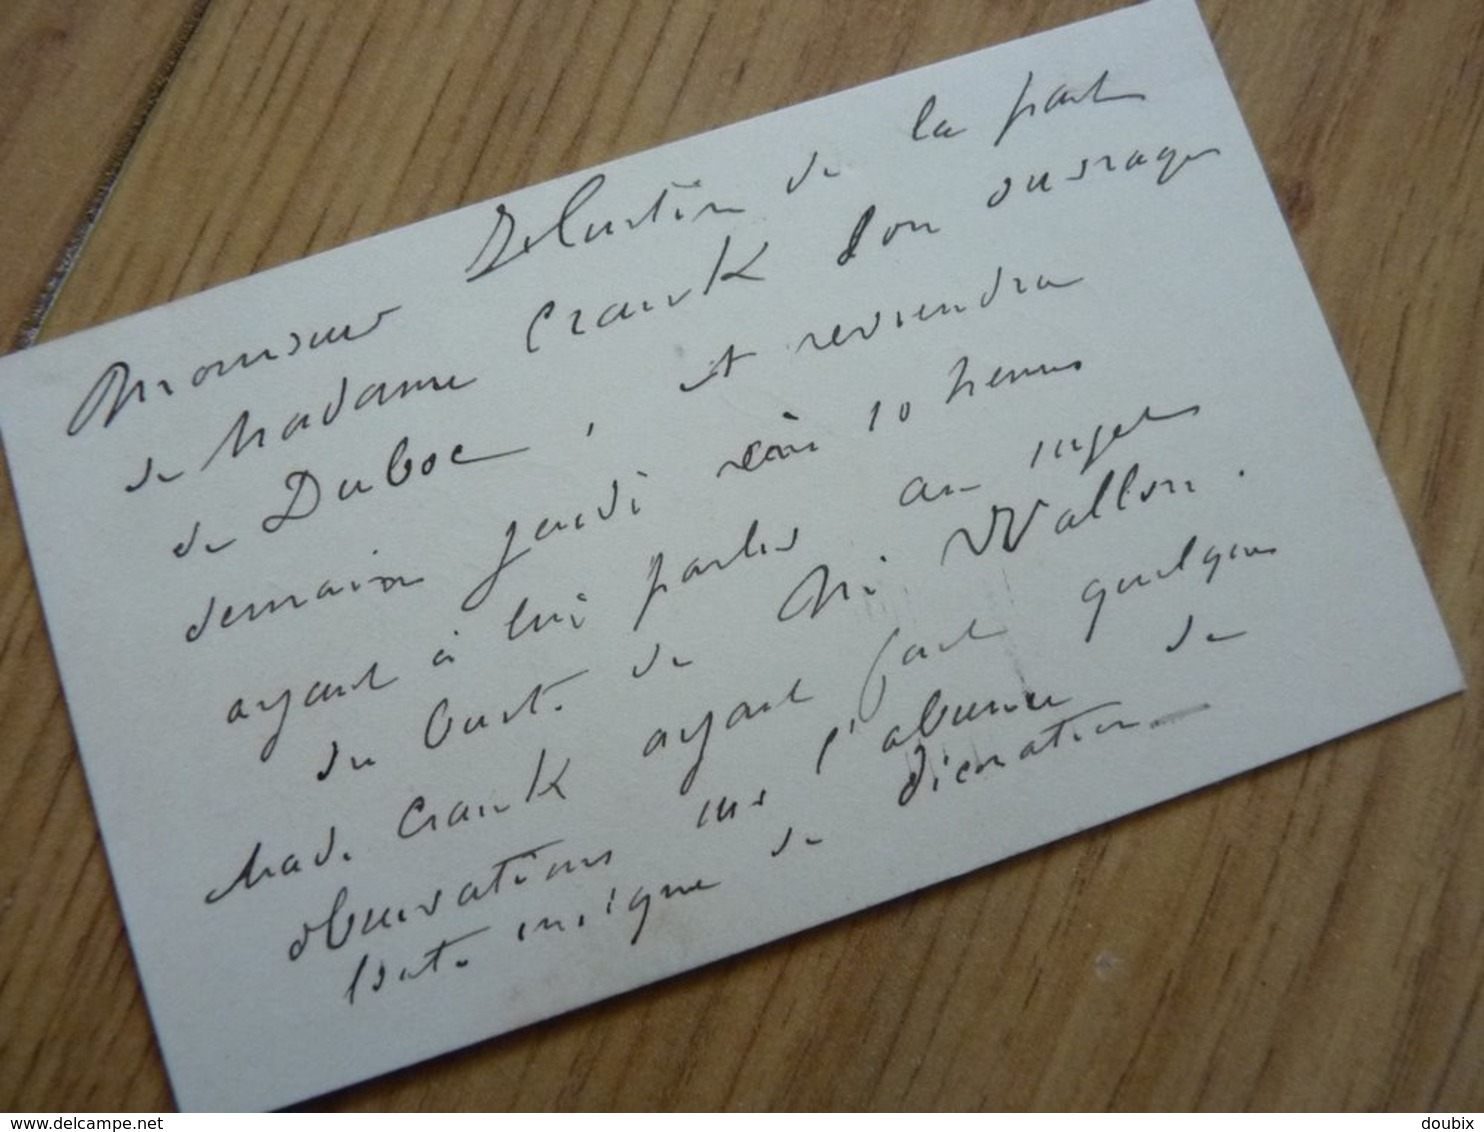 Monsieur Delantin de la part
de Madame Crauk son ouvrage
de Duboc, et reviendra
demain jeudi vers 10 heures
ayant à lui parler au sujet
du buste de Mr. Wallon.
Made. Crauk ayant fait quelques
observations sur l'absence de
tout insigne de décoration
delcampe.net
doubix